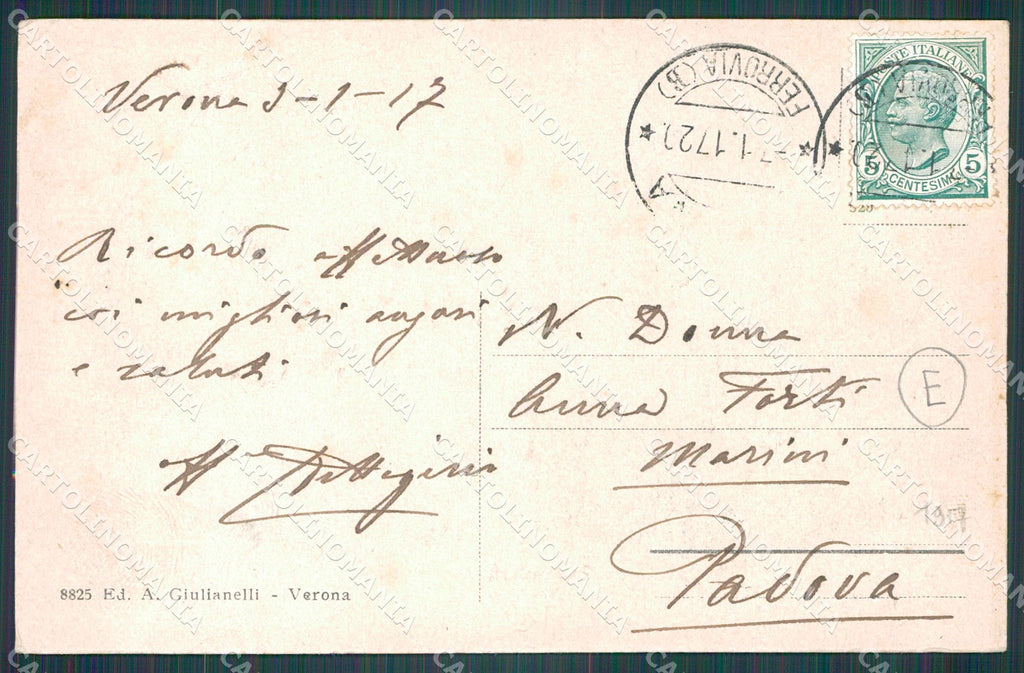 Verona 3-1-17
Ricordo affettuoso
coi migliori auguri
e saluti
Aff
8825 Ed. A. Giulianelli - Verona
N. Donna
Anna Forti
Marini
Padova
E
1917
FERROVIA (B)
1.17 20
POSTE ITALIANE
5 5
CENTESIMI
FERROVIA (B)
CARTOLINOMANIA